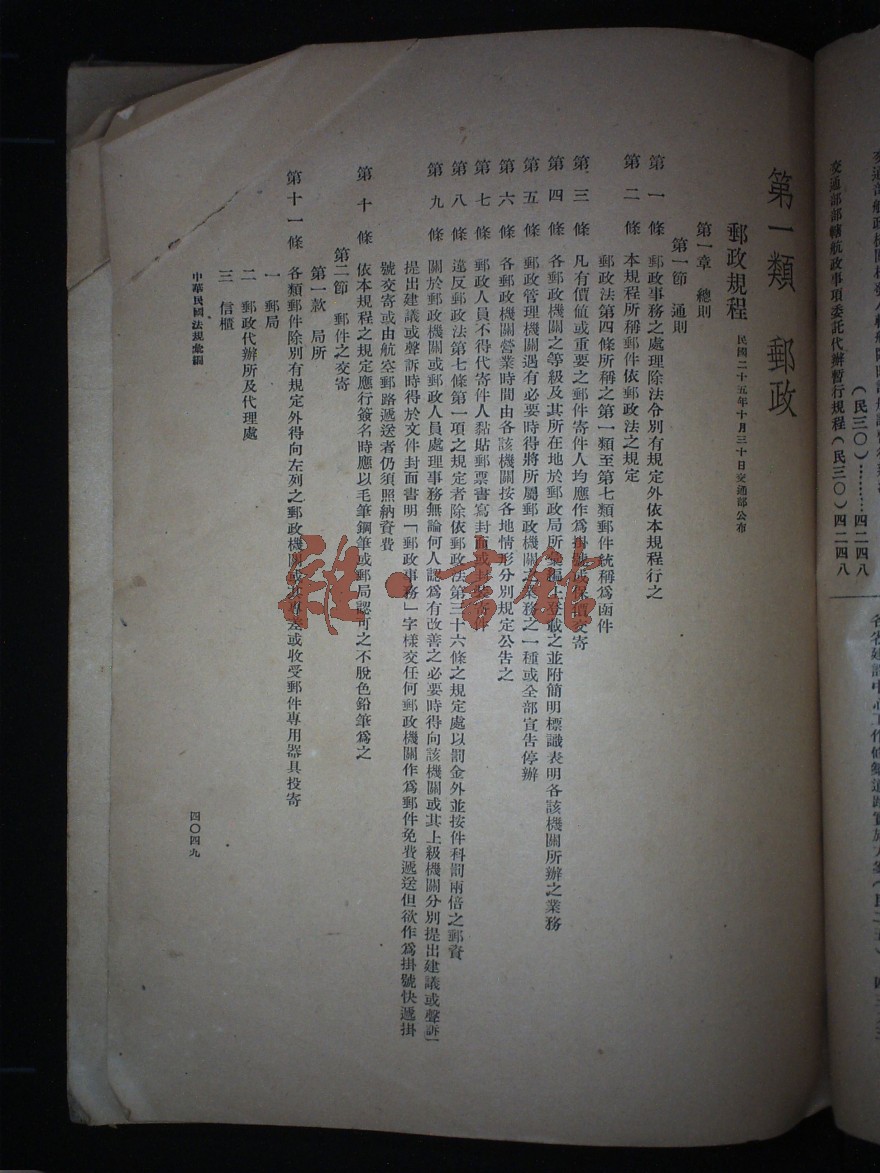 第一類 郵政
郵政規程 民國二十五年十月三十日交通部公布
第一章 總則
第一節 通則
第一條 郵政事務之處理除法令別有規定外依本規程行之
第二條 本規程所稱郵件依郵政法之規定
郵政法第四條所稱之第一類至第七類郵件統稱爲函件
第三條 凡有價値或重要之郵件寄件人均應作爲掛號或保價交寄
第四條 各郵政機關之等級及其所在地於郵政局所彙編上登載之並附簡明標識表明各該機關所辦之業務
第五條 郵政管理機關遇有必要時得將所屬郵政機關之業務之一種或全部宣告停辦
第六條 各郵政機關營業時間由各該機關按各地情形分別規定公告之
第七條 郵政人員不得代寄件人黏貼郵票書寫封面或封裝寄件
第八條 違反郵政法第七條第一項之規定者除依郵政法第三十六條之規定處以罰金外並按件科罰兩倍之郵資
第九條 關於郵政機關或郵政人員處理事務無論何人認爲有改善之必要時得向該機關或其上級機關分別提出建議或聲訴
提出建議或聲訴時得於文件封面書明「郵政事務」字樣交任何郵政機關作爲郵件免費遞送但欲作爲掛號快遞掛
號交寄或由航空郵路遞送者仍須照納資費
第十條 依本規程之規定應行簽名時應以毛筆鋼筆或郵局認可之不脫色鉛筆爲之
第二節 郵件之交寄
第一款 局所
第十一條 各類郵件除別有規定外得向左列之郵政機關或其專差或收受郵件專用器具投寄
一 郵局
二 郵政代辦所及代理處
三 信櫃
中華民國法規彙編
四〇四九
(民三〇)………四二四八
交通部部轄航政事項委託代辦暫行規程(民三〇)四二四八
雜·書館